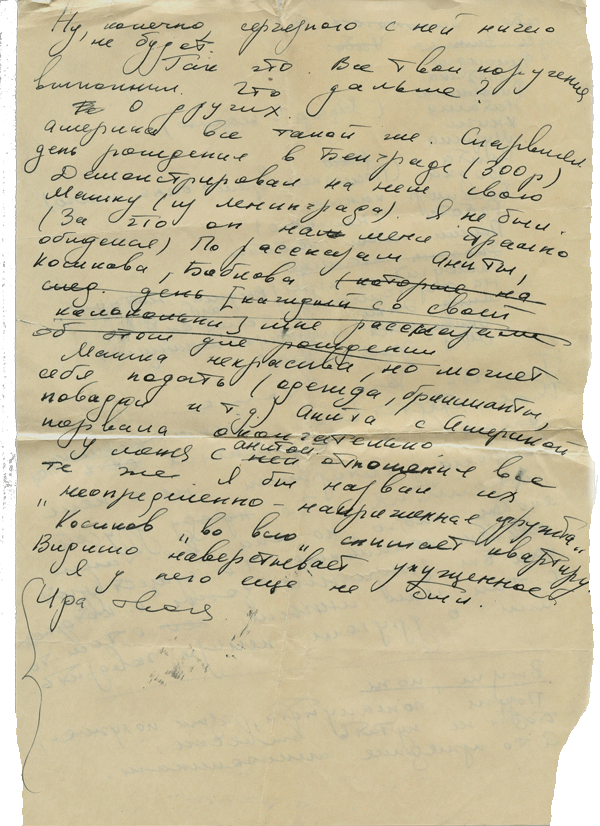 Ну, конечно серьезного с ней ничего
не будет.
Так что. Все твои поручения
выполнил. Что дальше?
О других.
Америка все такой же. Справлял
день рождения в Белграде (300 р)
Демонстрировал на нем свою
Машку (из Ленинграда). Я не был.
(За это он на меня страшно
обиделся) По рассказам Аниты,
Косикова, Бабкова (которые на
след. день [каждый со своей
колокольни] мне рассказали
об этом дне рождения
Машка некрасива, но может
себя подать (одежда, бриллианты,
повадки и т.д.) Анита с Америкой
порвала окончательно.
У меня с Анитой отношения все
те же. Я бы назвал их
„неопределенно-напряженная дружба"
Косиков „во всю" снимает квартиру.
Видимо наверстывает упущенное.
Я у него еще не был.
Ира твоя